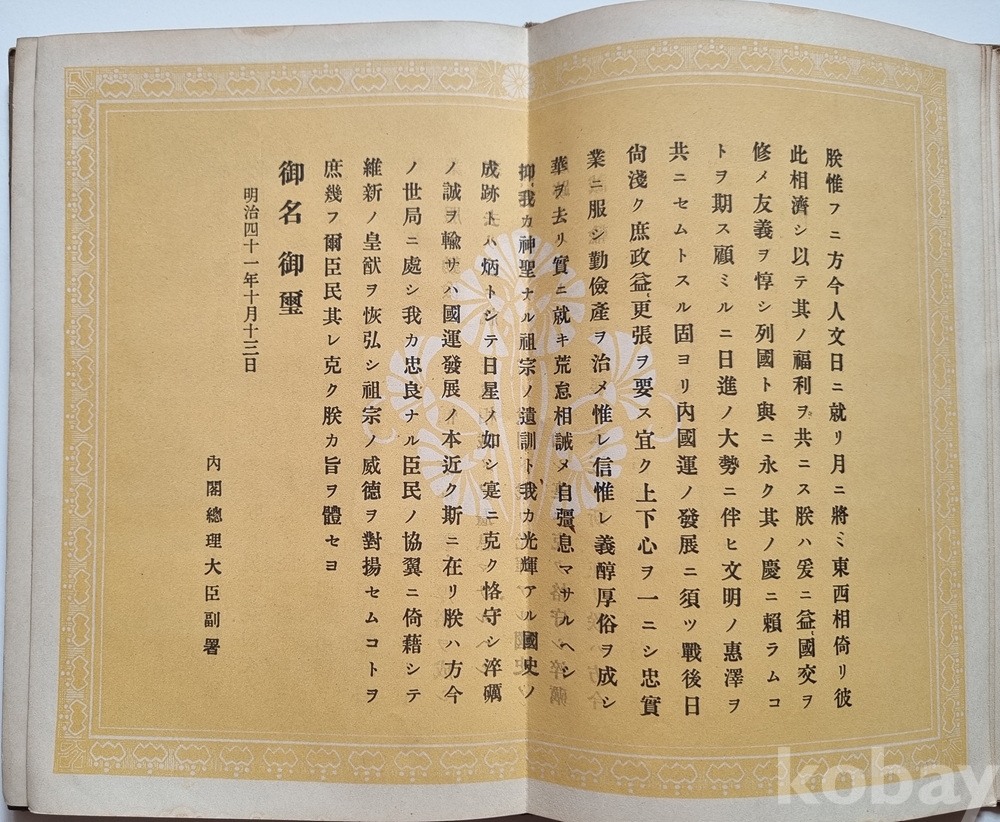 朕惟フニ方今人文日ニ就リ月ニ將ミ東西相倚リ彼
此相濟シ以テ其ノ福利ヲ共ニス朕ハ爰ニ益〻國交ヲ
修メ友義ヲ惇シ列國ト與ニ永ク其ノ慶ニ賴ラムコ
トヲ期ス顧ミルニ日進ノ大勢ニ伴ヒ文明ノ惠澤ヲ
共ニセムトスル固ヨリ內國運ノ發展ニ須ツ戰後日
尙淺ク庶政益〻更張ヲ要ス宜ク上下心ヲ一ニシ忠實
業ニ服シ勤儉產ヲ治メ惟レ信惟レ義醇厚俗ヲ成シ
華ヲ去リ實ニ就キ荒怠相誡メ自彊息マサルヘシ
抑〻我カ神聖ナル祖宗ノ遺訓ト我カ光輝アル國史ノ
成跡トハ炳トシテ日星ノ如シ寔ニ克ク恪守シ淬礪
ノ誠ヲ輸サハ國運發展ノ本近ク斯ニ在リ朕ハ方今
ノ世局ニ處シ我カ忠良ナル臣民ノ協翼ニ倚藉シテ
維新ノ皇猷ヲ恢弘シ祖宗ノ威德ヲ對揚セムコトヲ
庶幾フ爾臣民其レ克ク朕カ旨ヲ體セヨ
御名御璽
明治四十一年十月十三日
內閣總理大臣副署
kobay